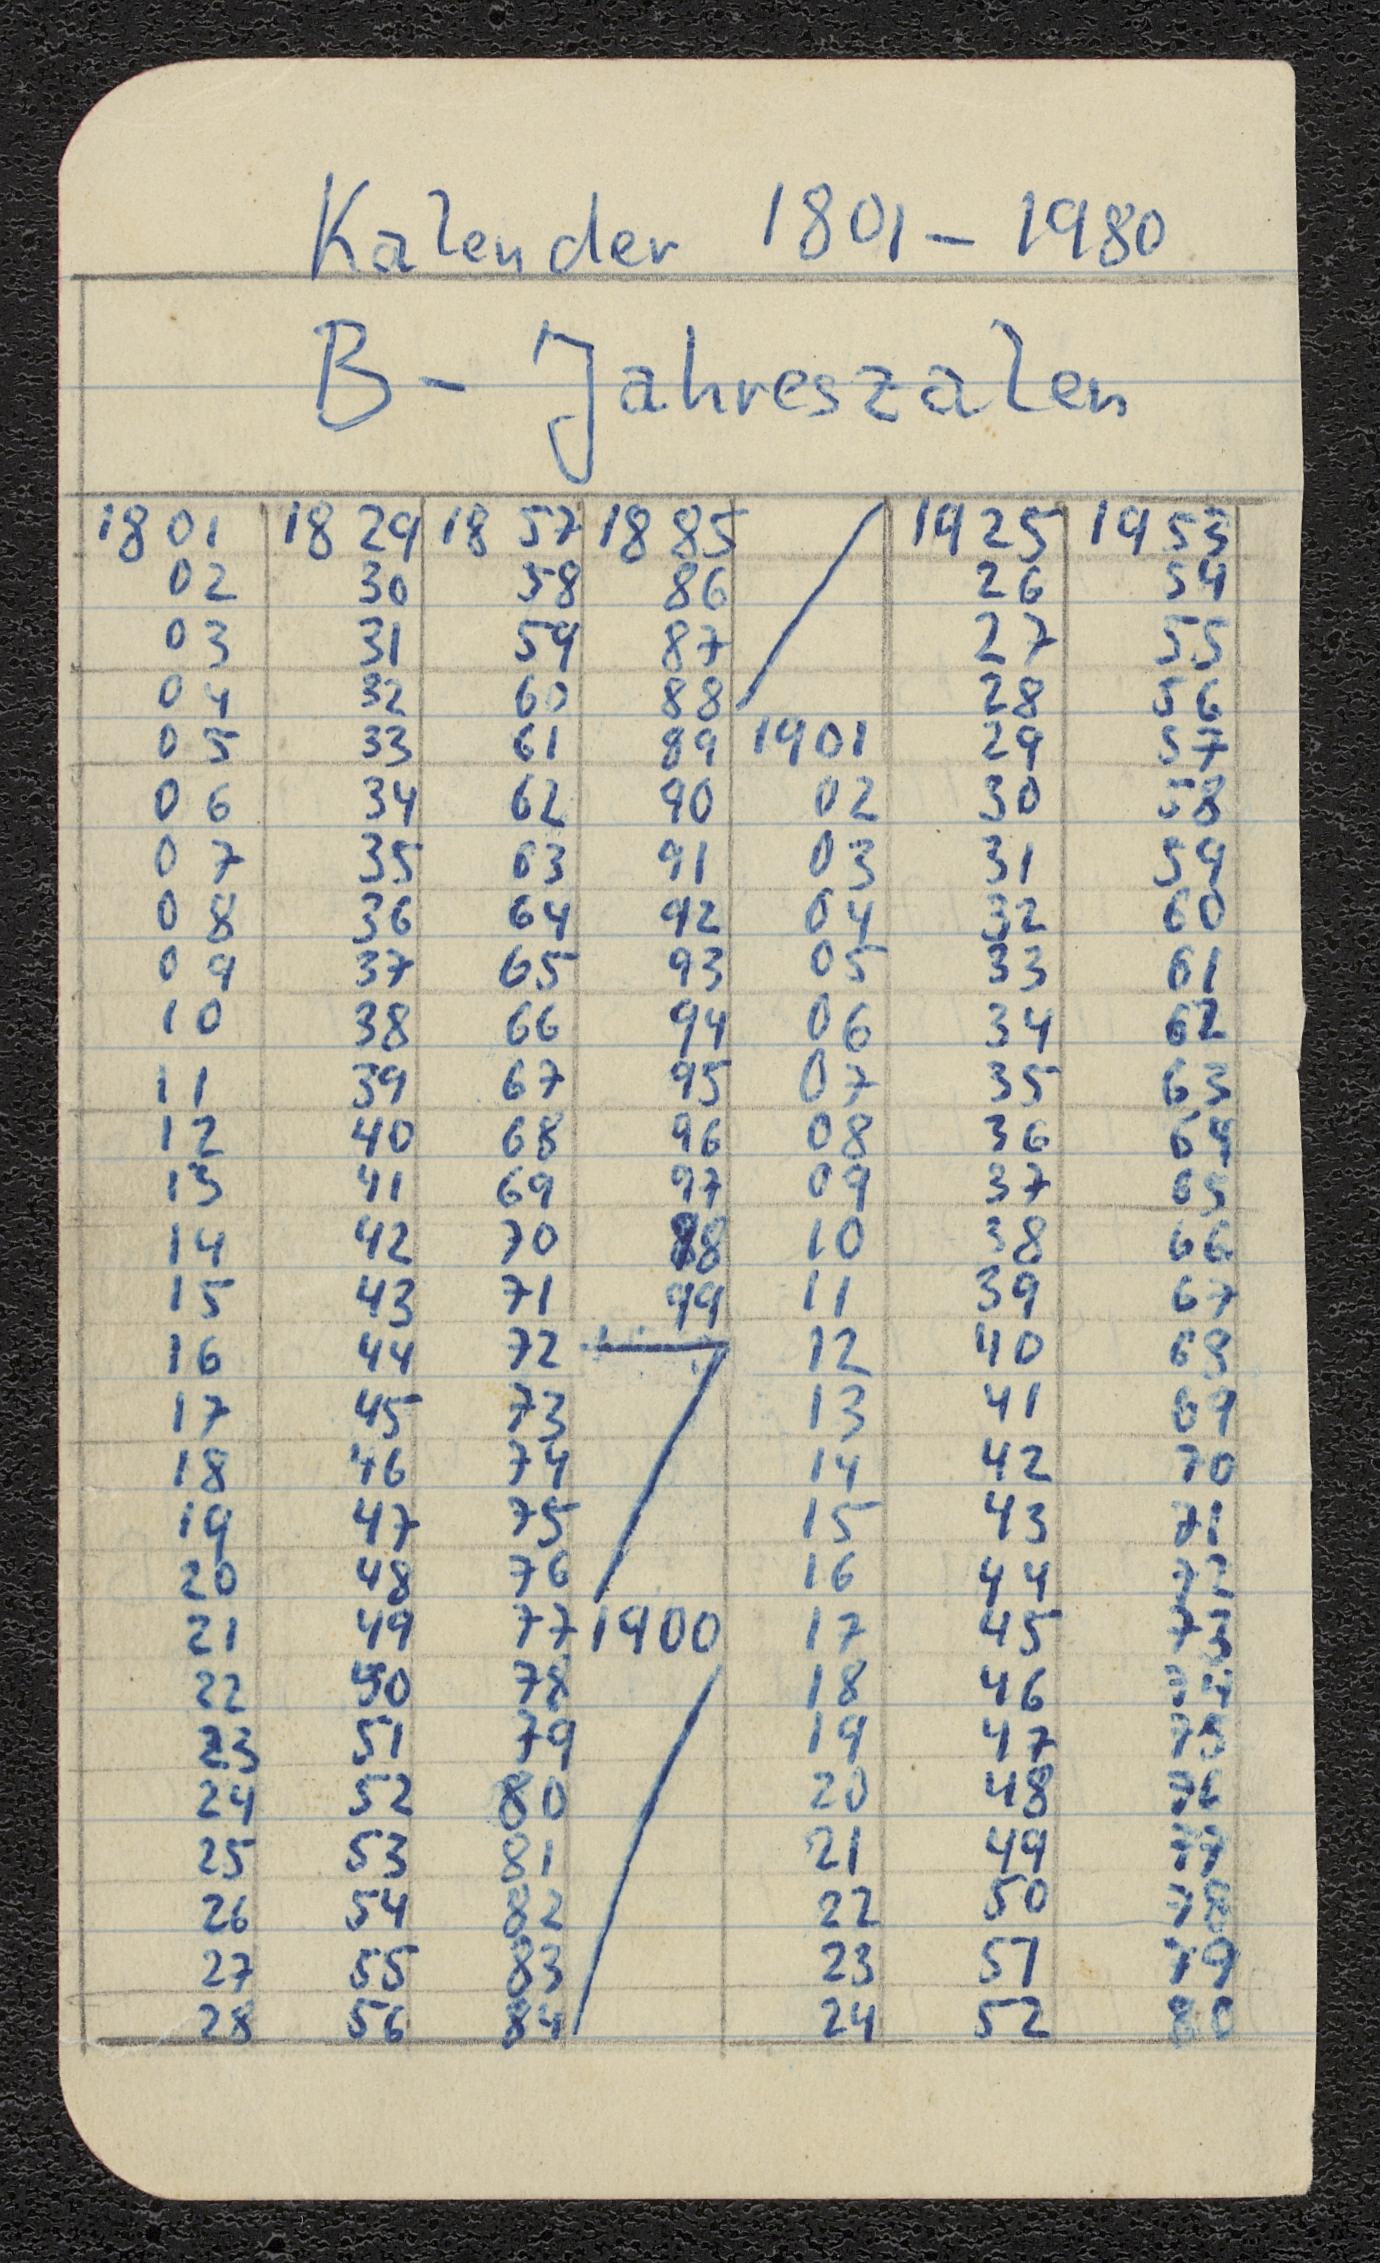 Kalender 1801 - 1980
B - Jahreszalen
1801 1829 1857 1885 1925 1953
02 30 58 86 26 54
03 31 59 87 27 55
04 32 60 88 28 56
05 33 61 89 1901 29 57
06 34 62 90 02 30 58
07 35 63 91 03 31 59
08 36 64 92 04 32 60
09 37 65 93 05 33 61
10 38 66 94 06 34 62
11 39 67 95 07 35 63
12 40 68 96 08 36 64
13 41 69 97 09 37 65
14 42 70 98 10 38 66
15 43 71 99 11 39 67
16 44 72 12 40 68
17 45 73 13 41 69
18 46 74 14 42 70
19 47 75 15 43 71
20 48 76 16 44 72
21 49 77 1900 17 45 73
22 50 78 18 46 74
23 51 79 19 47 75
24 52 80 20 48 76
25 53 81 21 49 77
26 54 82 22 50 78
27 55 83 23 51 79
28 56 84 24 52 80